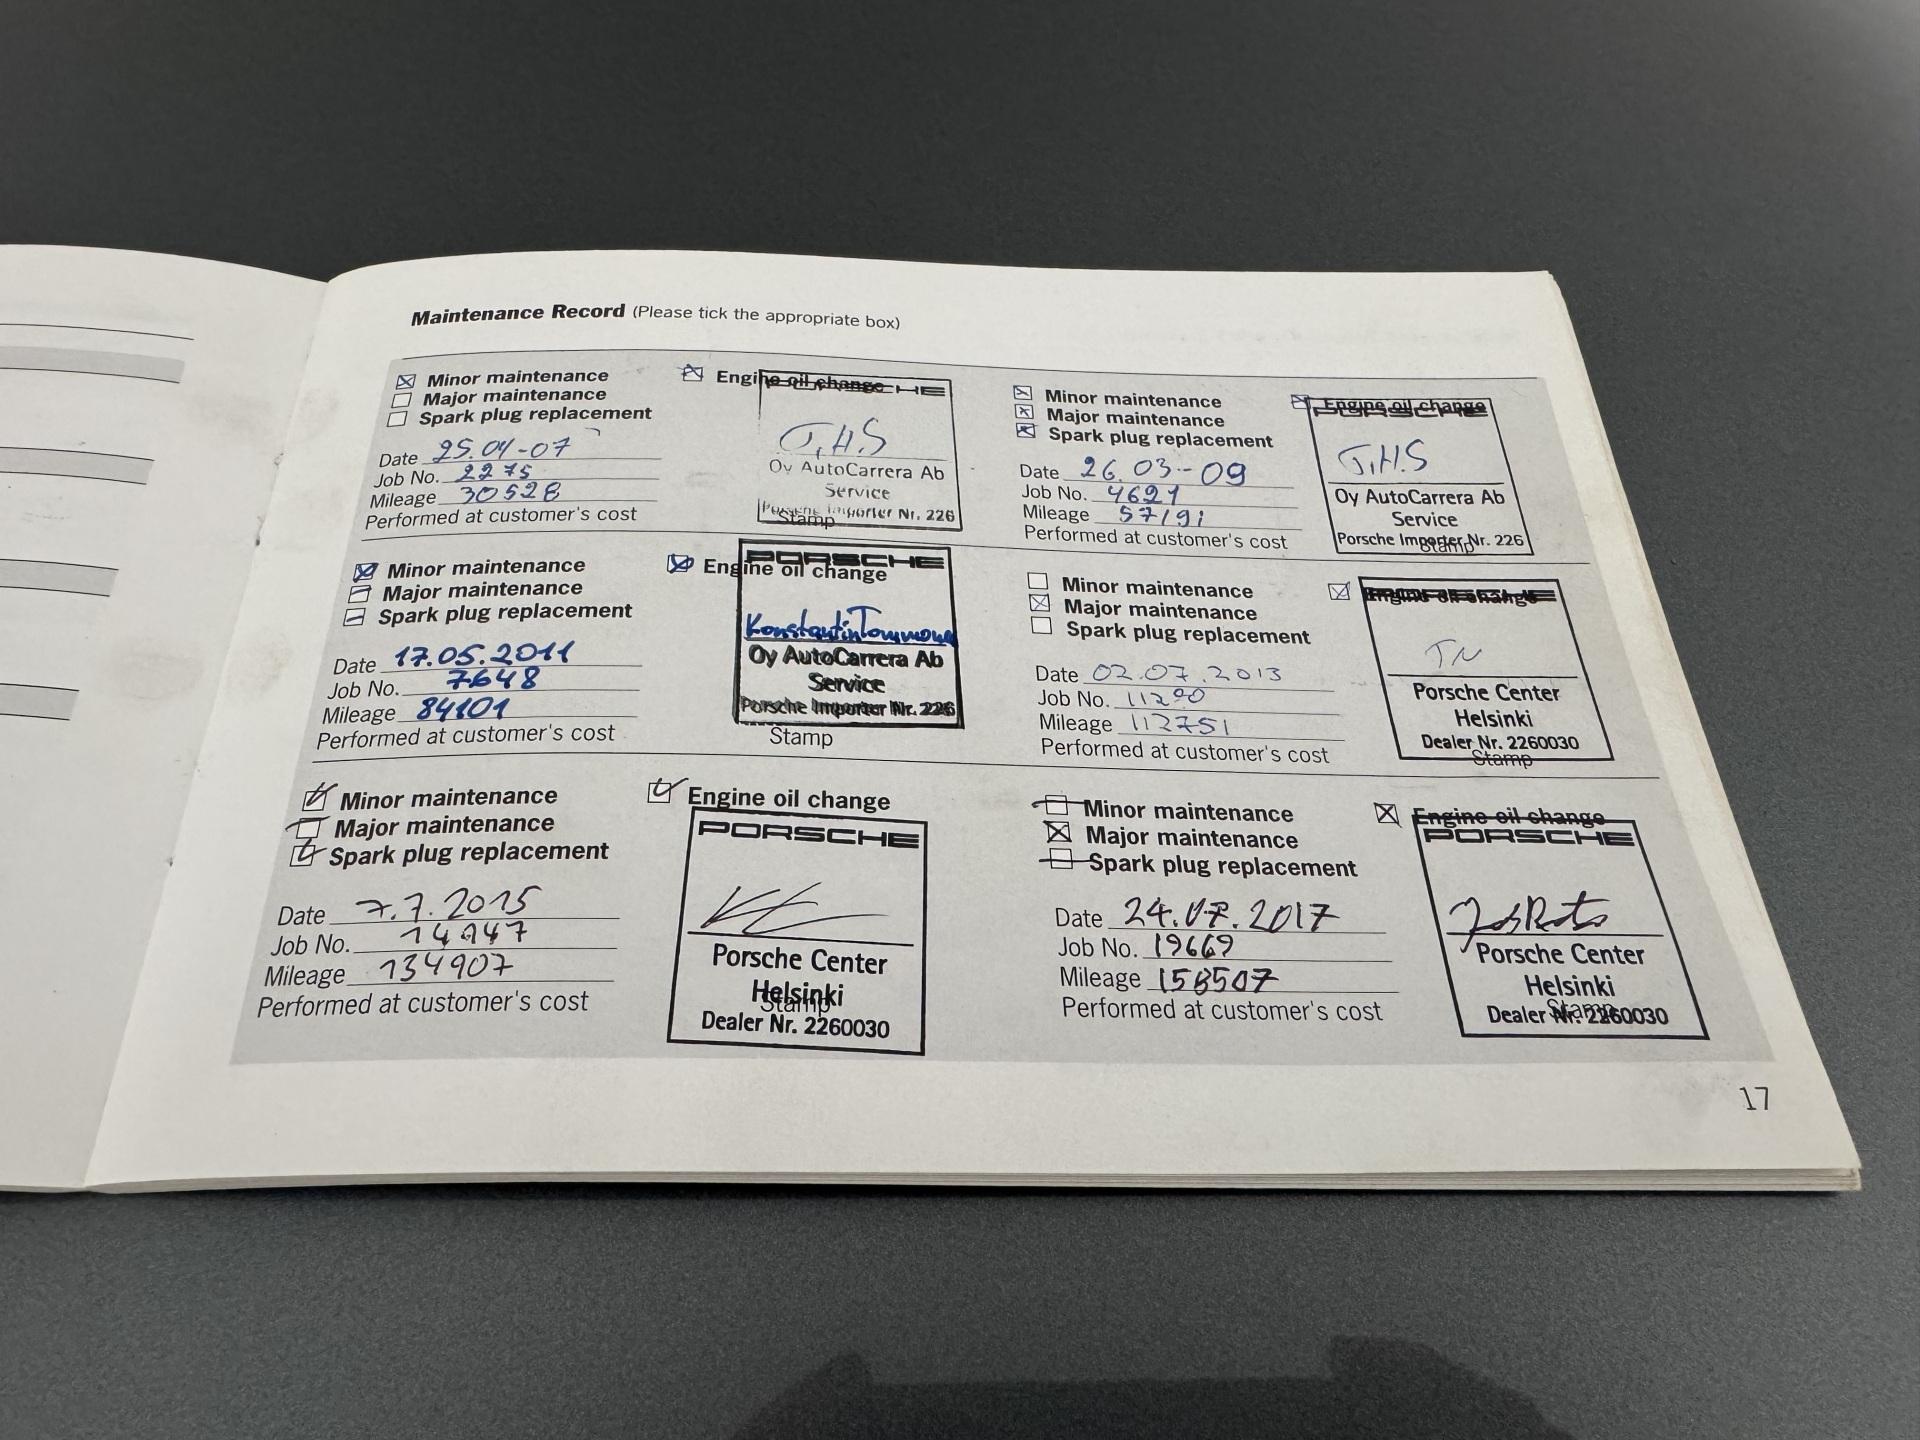 Maintenance Record (Please tick the appropriate box)
Minor maintenance
Major maintenance
Spark plug replacement
Engine oil change
Date 25.04-07
Job No. 2275
Mileage 30528
Performed at customer's cost
J.H.S
Oy AutoCarrera Ab
Service
Porsche Importer Nr. 226
Stamp
Minor maintenance
Major maintenance
Spark plug replacement
Engine oil change
PORSCHE
Date 26.03-09
Job No. 4621
Mileage 57191
Performed at customer's cost
J.H.S
Oy AutoCarrera Ab
Service
Porsche Importer Nr. 226
Stamp
Minor maintenance
Major maintenance
Spark plug replacement
Engine oil change
PORSCHE
Date 17.05.2011
Job No. 7648
Mileage 84101
Performed at customer's cost
Konstantin
Oy AutoCarrera Ab
Service
Porsche Importer Nr. 226
Stamp
Minor maintenance
Major maintenance
Spark plug replacement
Engine oil change
PORSCHE
Date 02.07.2013
Job No. 11290
Mileage 112751
Performed at customer's cost
TN
Porsche Center
Helsinki
Dealer Nr. 2260030
Stamp
Minor maintenance
Major maintenance
Spark plug replacement
Engine oil change
PORSCHE
Date 7.7.2015
Job No. 14947
Mileage 134907
Performed at customer's cost
Porsche Center
Helsinki
Stamp
Dealer Nr. 2260030
Minor maintenance
Major maintenance
Spark plug replacement
Engine oil change
PORSCHE
Date 24.07.2017
Job No. 19669
Mileage 158507
Performed at customer's cost
Porsche Center
Helsinki
Stamp
Dealer Nr. 2260030
17